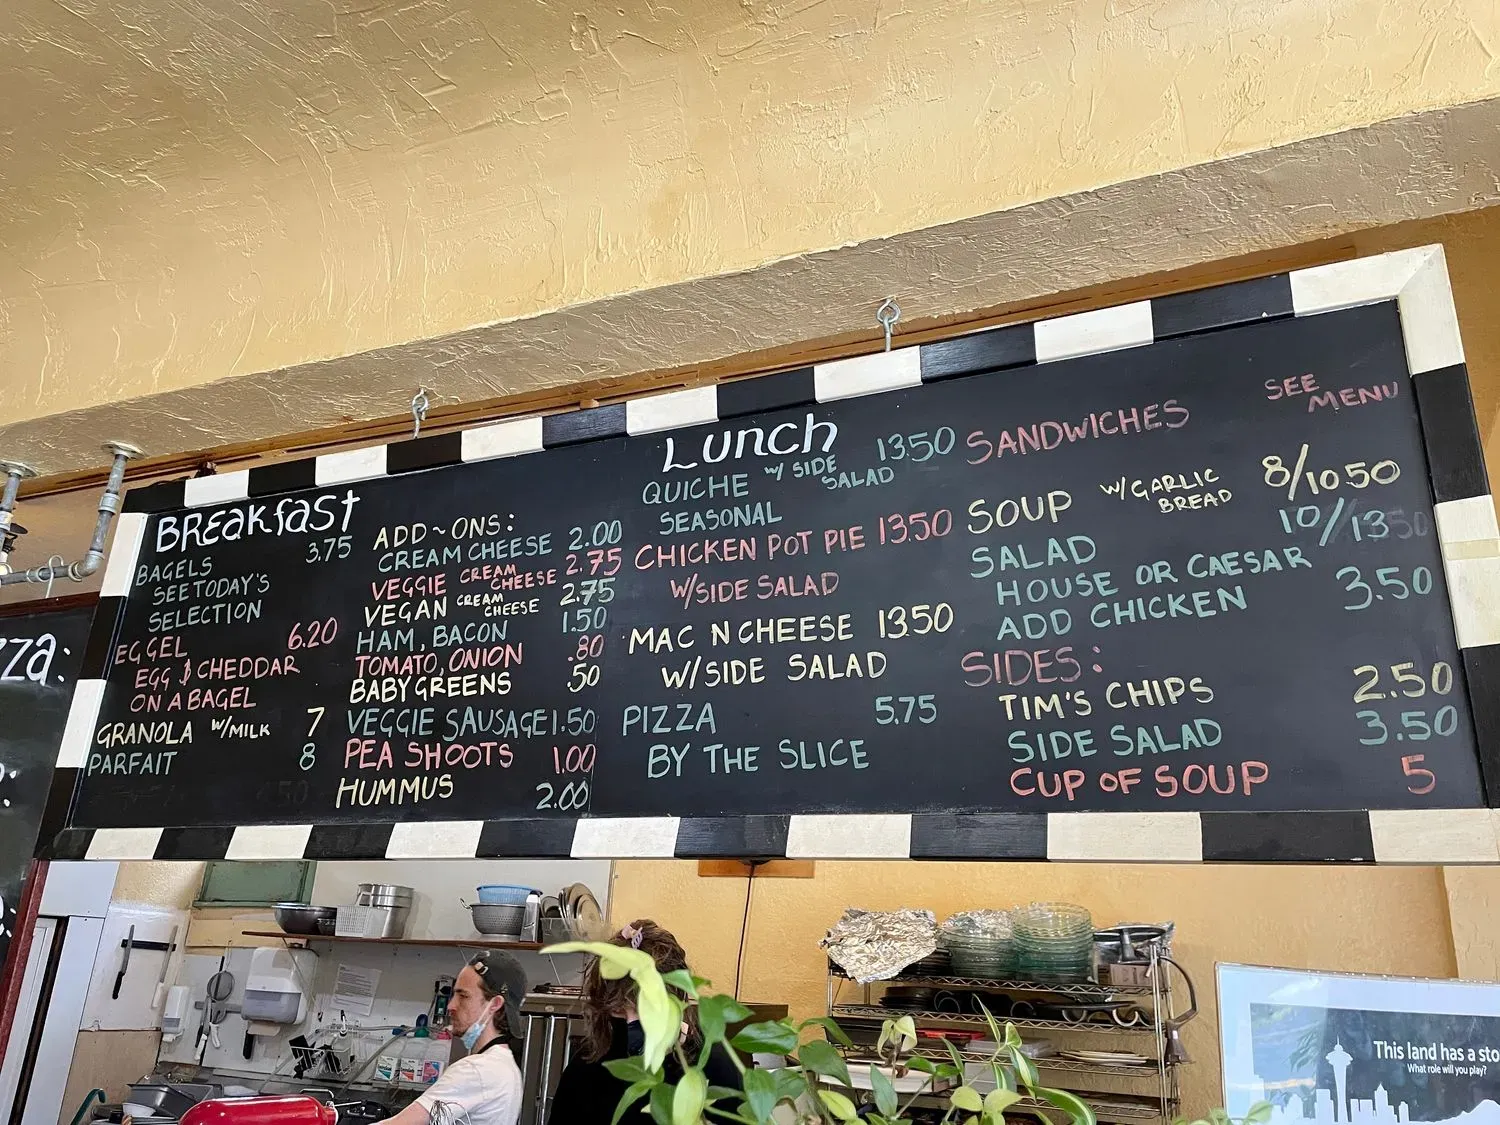 zza:
BREAKFAST
BAGELS 3.75
SEE TODAY'S
SELECTION
EGGEL 6.20
EGG & CHEDDAR
ON A BAGEL
GRANOLA W/MILK 7
PARFAIT 8
ADD~ONS:
CREAM CHEESE 2.00
VEGGIE CREAM CHEESE 2.75
VEGAN CREAM CHEESE 2.75
HAM, BACON 1.50
TOMATO, ONION .80
BABY GREENS .50
VEGGIE SAUSAGE 1.50
PEA SHOOTS 1.00
HUMMUS 2.00
LUNCH
QUICHE W/ SIDE SALAD 13.50
SEASONAL
CHICKEN POT PIE 13.50
W/SIDE SALAD
MAC N CHEESE 13.50
W/SIDE SALAD
PIZZA 5.75
BY THE SLICE
SANDWICHES SEE MENU
SOUP W/GARLIC BREAD 8/10.50
SALAD 10/13
HOUSE OR CAESAR
ADD CHICKEN 3.50
SIDES:
TIM'S CHIPS 2.50
SIDE SALAD 3.50
CUP OF SOUP 5
This land has a sto
What role will you play?